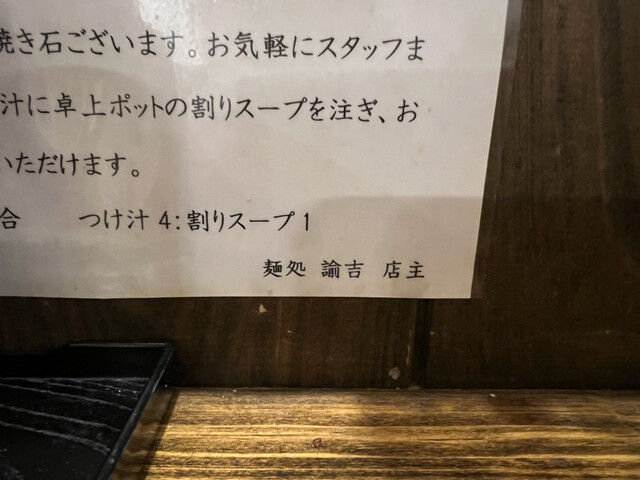 焼き石ございます。お気軽にスタッフま
汁に卓上ポットの割りスープを注ぎ、お
いただけます。
合　つけ汁 4:割りスープ 1
麺処 諭吉 店主